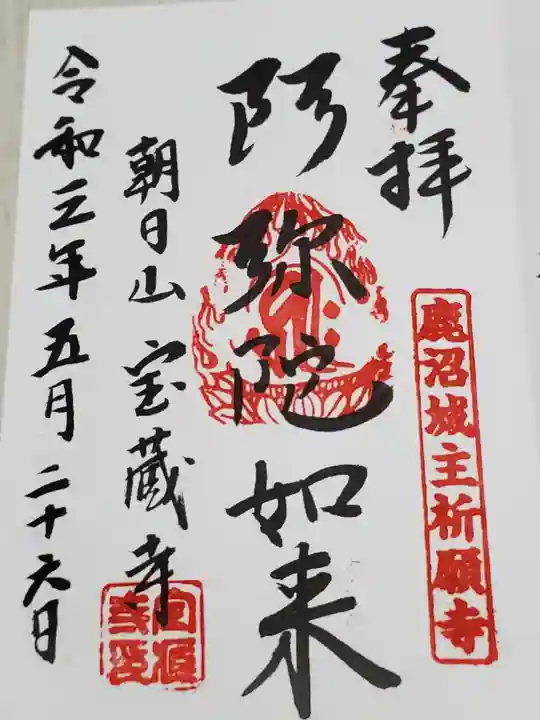 奉拝
鹿沼城主祈願寺
阿弥陀如来
朝日山宝蔵寺
令和三年五月二十六日